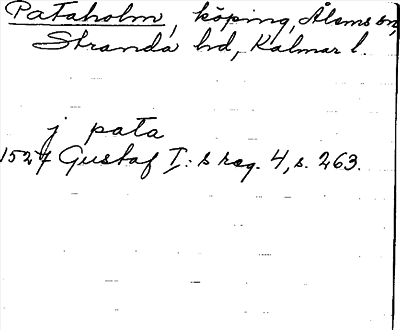 Pataholm, köping, Ålems sn,
Stranda hd, Kalmar l.
j pata
1527 Gustaf I:s reg. 4, s. 263.